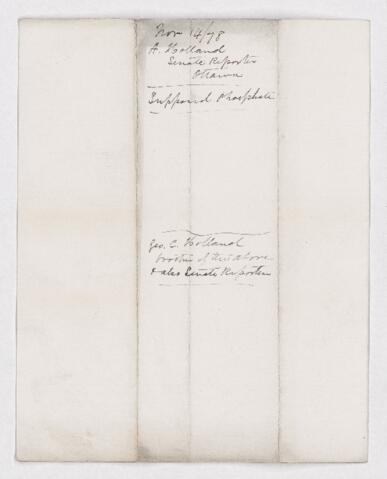 Nov 14/78
A. Holland
Senate Reporter
Ottawa
Supposed Phosphate
Geo. C. Holland
brother of the above
& also Senate Reporter